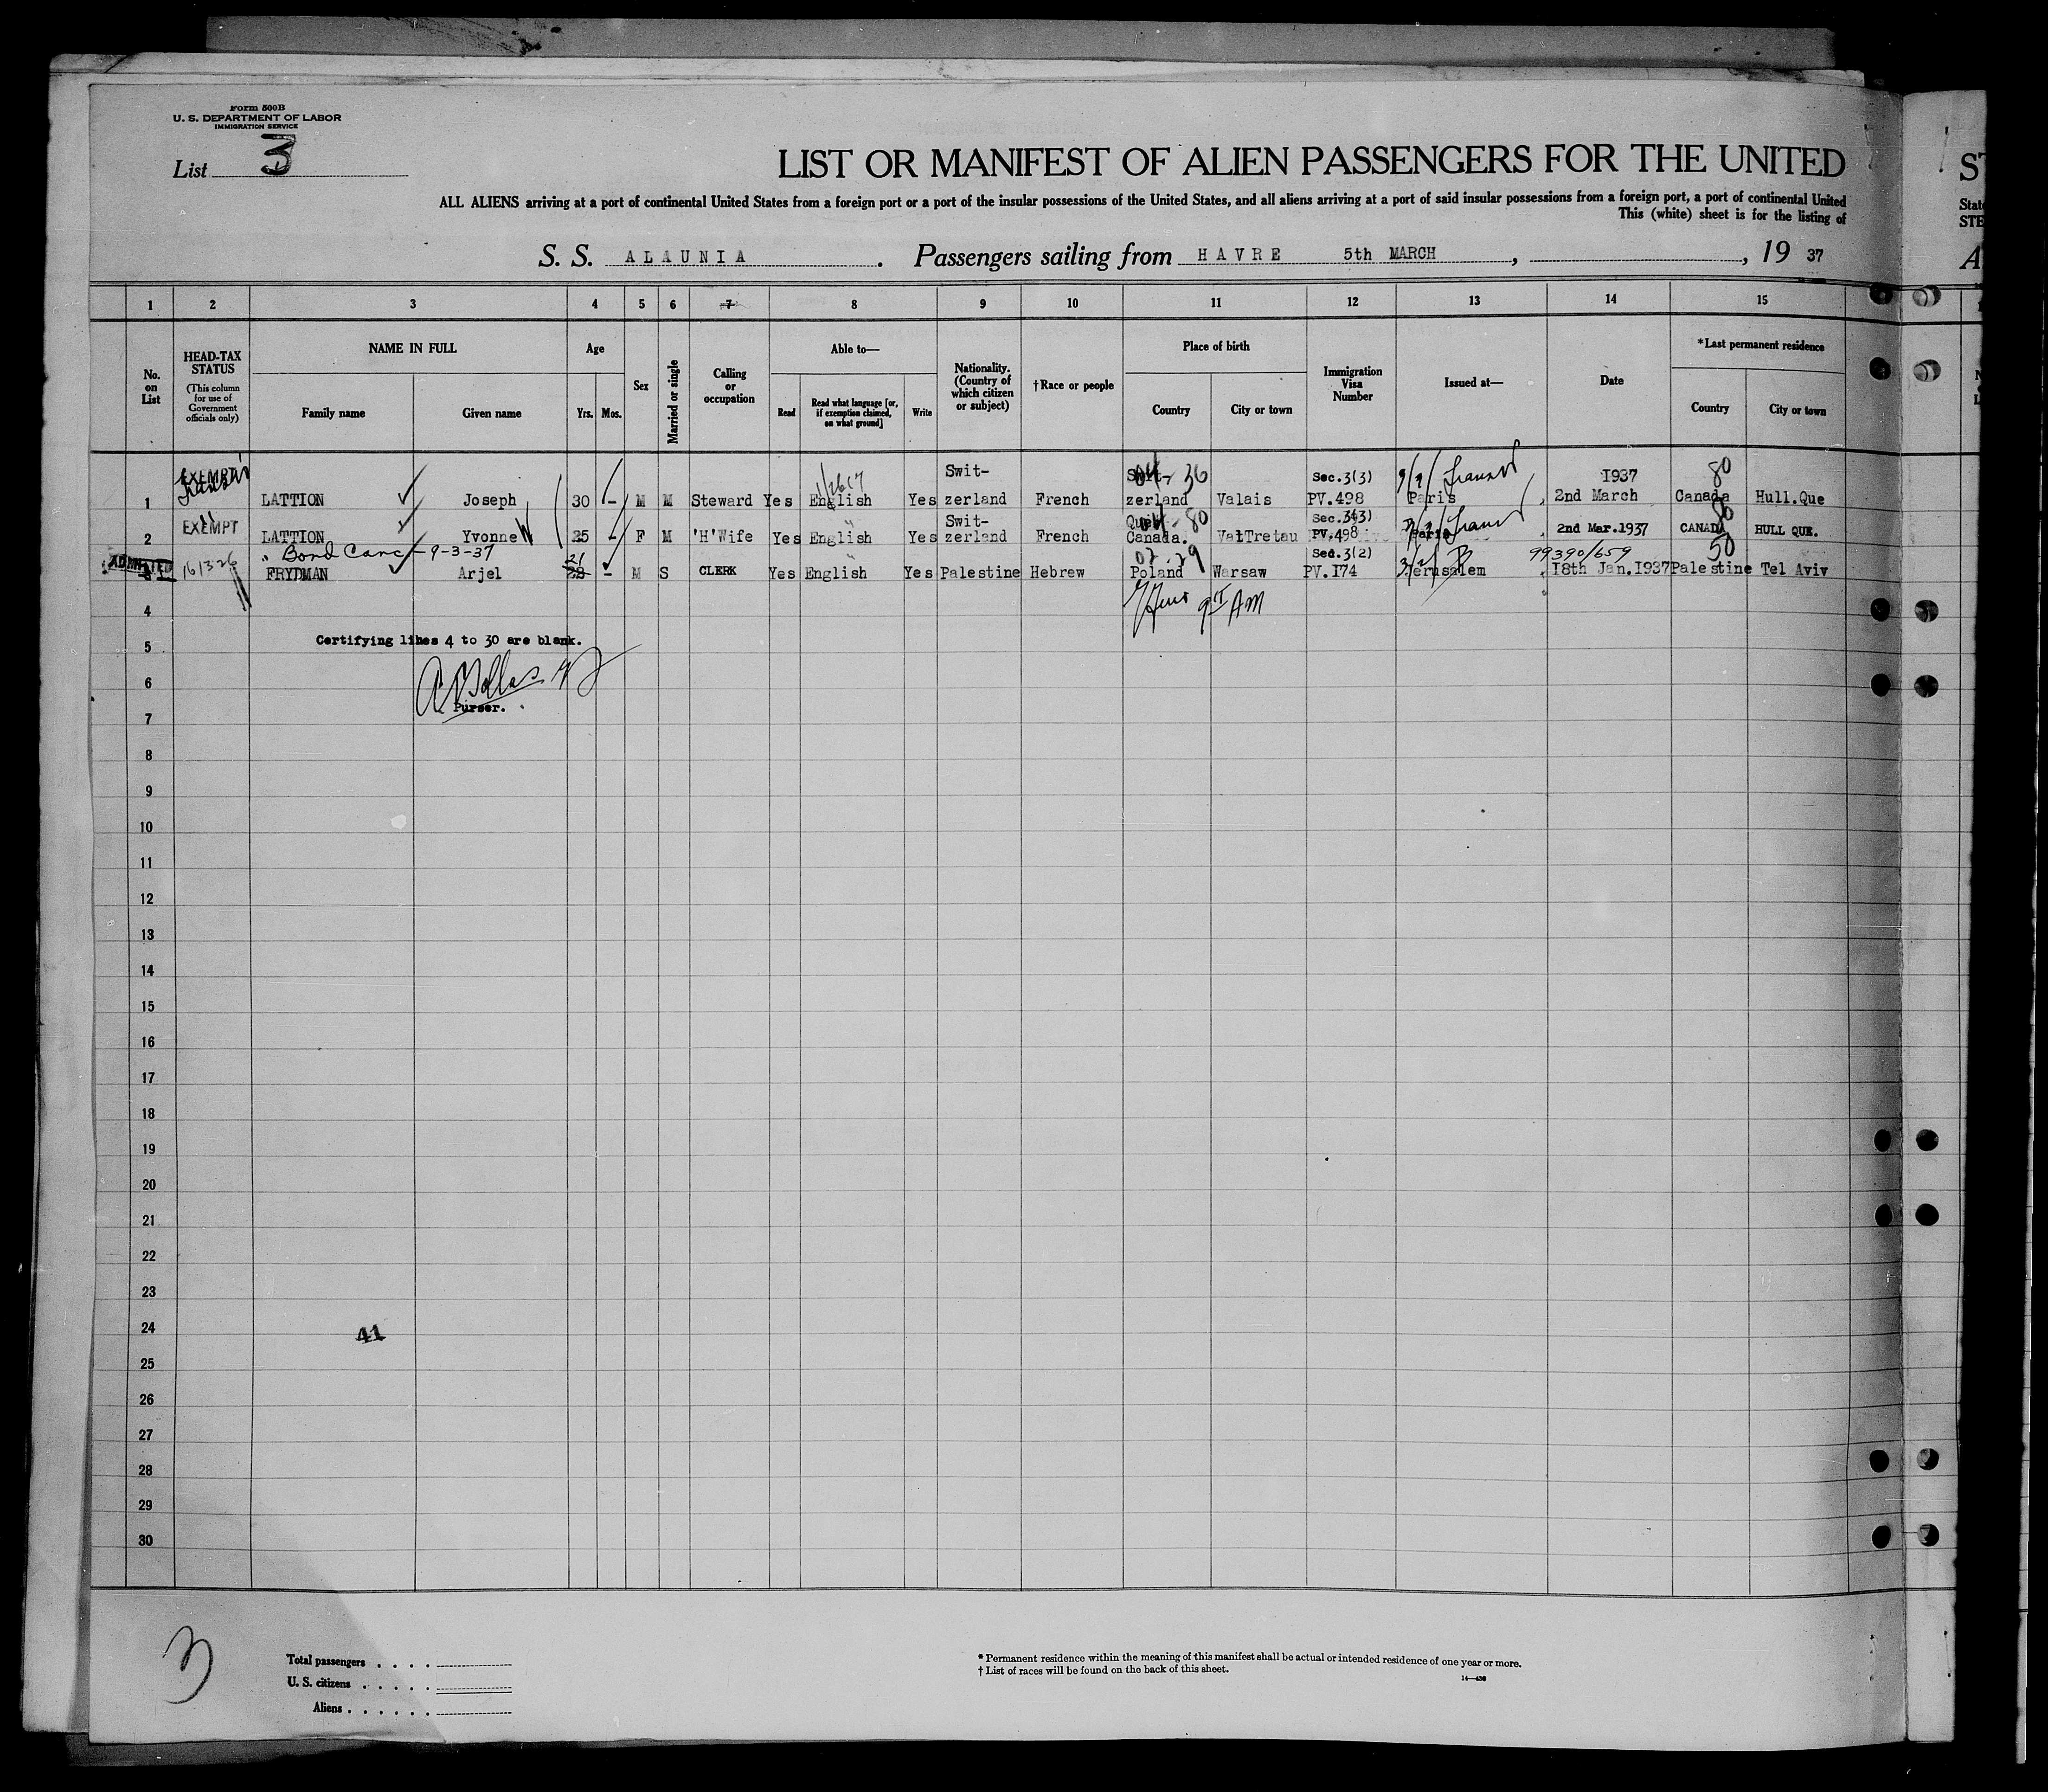 Form 500B
U. S. DEPARTMENT OF LABOR
IMMIGRATION SERVICE
List 3
LIST OR MANIFEST OF ALIEN PASSENGERS FOR THE UNITED
ST
ALL ALIENS arriving at a port of continental United States from a foreign port or a port of the insular possessions of the United States, and all aliens arriving at a port of said insular possessions from a foreign port, a port of continental United
This (white) sheet is for the listing of
STE
S. S. ALAUNIA. Passengers sailing from HAVRE 5th MARCH, , 19 37
1 2 3 4 5 6 7 8 9 10 11 12 13 14 15
No. on List
HEAD-TAX STATUS (This column for use of Government officials only)
NAME IN FULL
Family name
Given name
Age
Yrs.
Mos.
Sex
Married or single
Calling or occupation
Able to—
Read
Read what language [or, if exemption claimed, on what ground]
Write
Nationality. (Country of which citizen or subject)
†Race or people
Place of birth
Country
City or town
Immigration Visa Number
Issued at—
Date
*Last permanent residence
Country
City or town
EXEMPT Swit- Swit- 36 Sec.3(3) 1937 80
1 LATTION Joseph 30 - M M Steward Yes English Yes zerland French zerland Valais PV.498 Paris 2nd March Canada Hull.Que
EXEMPT Swit- Que 80 Sec.3(3) 80
2 LATTION Yvonne 25 - F M 'H'Wife Yes English Yes zerland French Canada. PV.498 Paris 2nd Mar.1937 CANADA HULL QUE.
Bond Canc - 9-3-37 21 07-29 Sec.3(2) 99390/659 50
ADMITTED 161326 FRYDMAN Arjel 22 - M S CLERK Yes English Yes Palestine Hebrew Poland Warsaw PV.174 Jerusalem 18th Jan.1937 Palestine Tel Aviv
4 AM
Certifying lines 4 to 30 are blank.
5
6
Purser.
7
8
9
10
11
12
13
14
15
16
17
18
19
20
21
22
23
24 41
25
26
27
28
29
30
3
Total passengers . . . .
U. S. citizens . . . . .
Aliens . . . . . .
* Permanent residence within the meaning of this manifest shall be actual or intended residence of one year or more.
† List of races will be found on the back of this sheet.
14—430